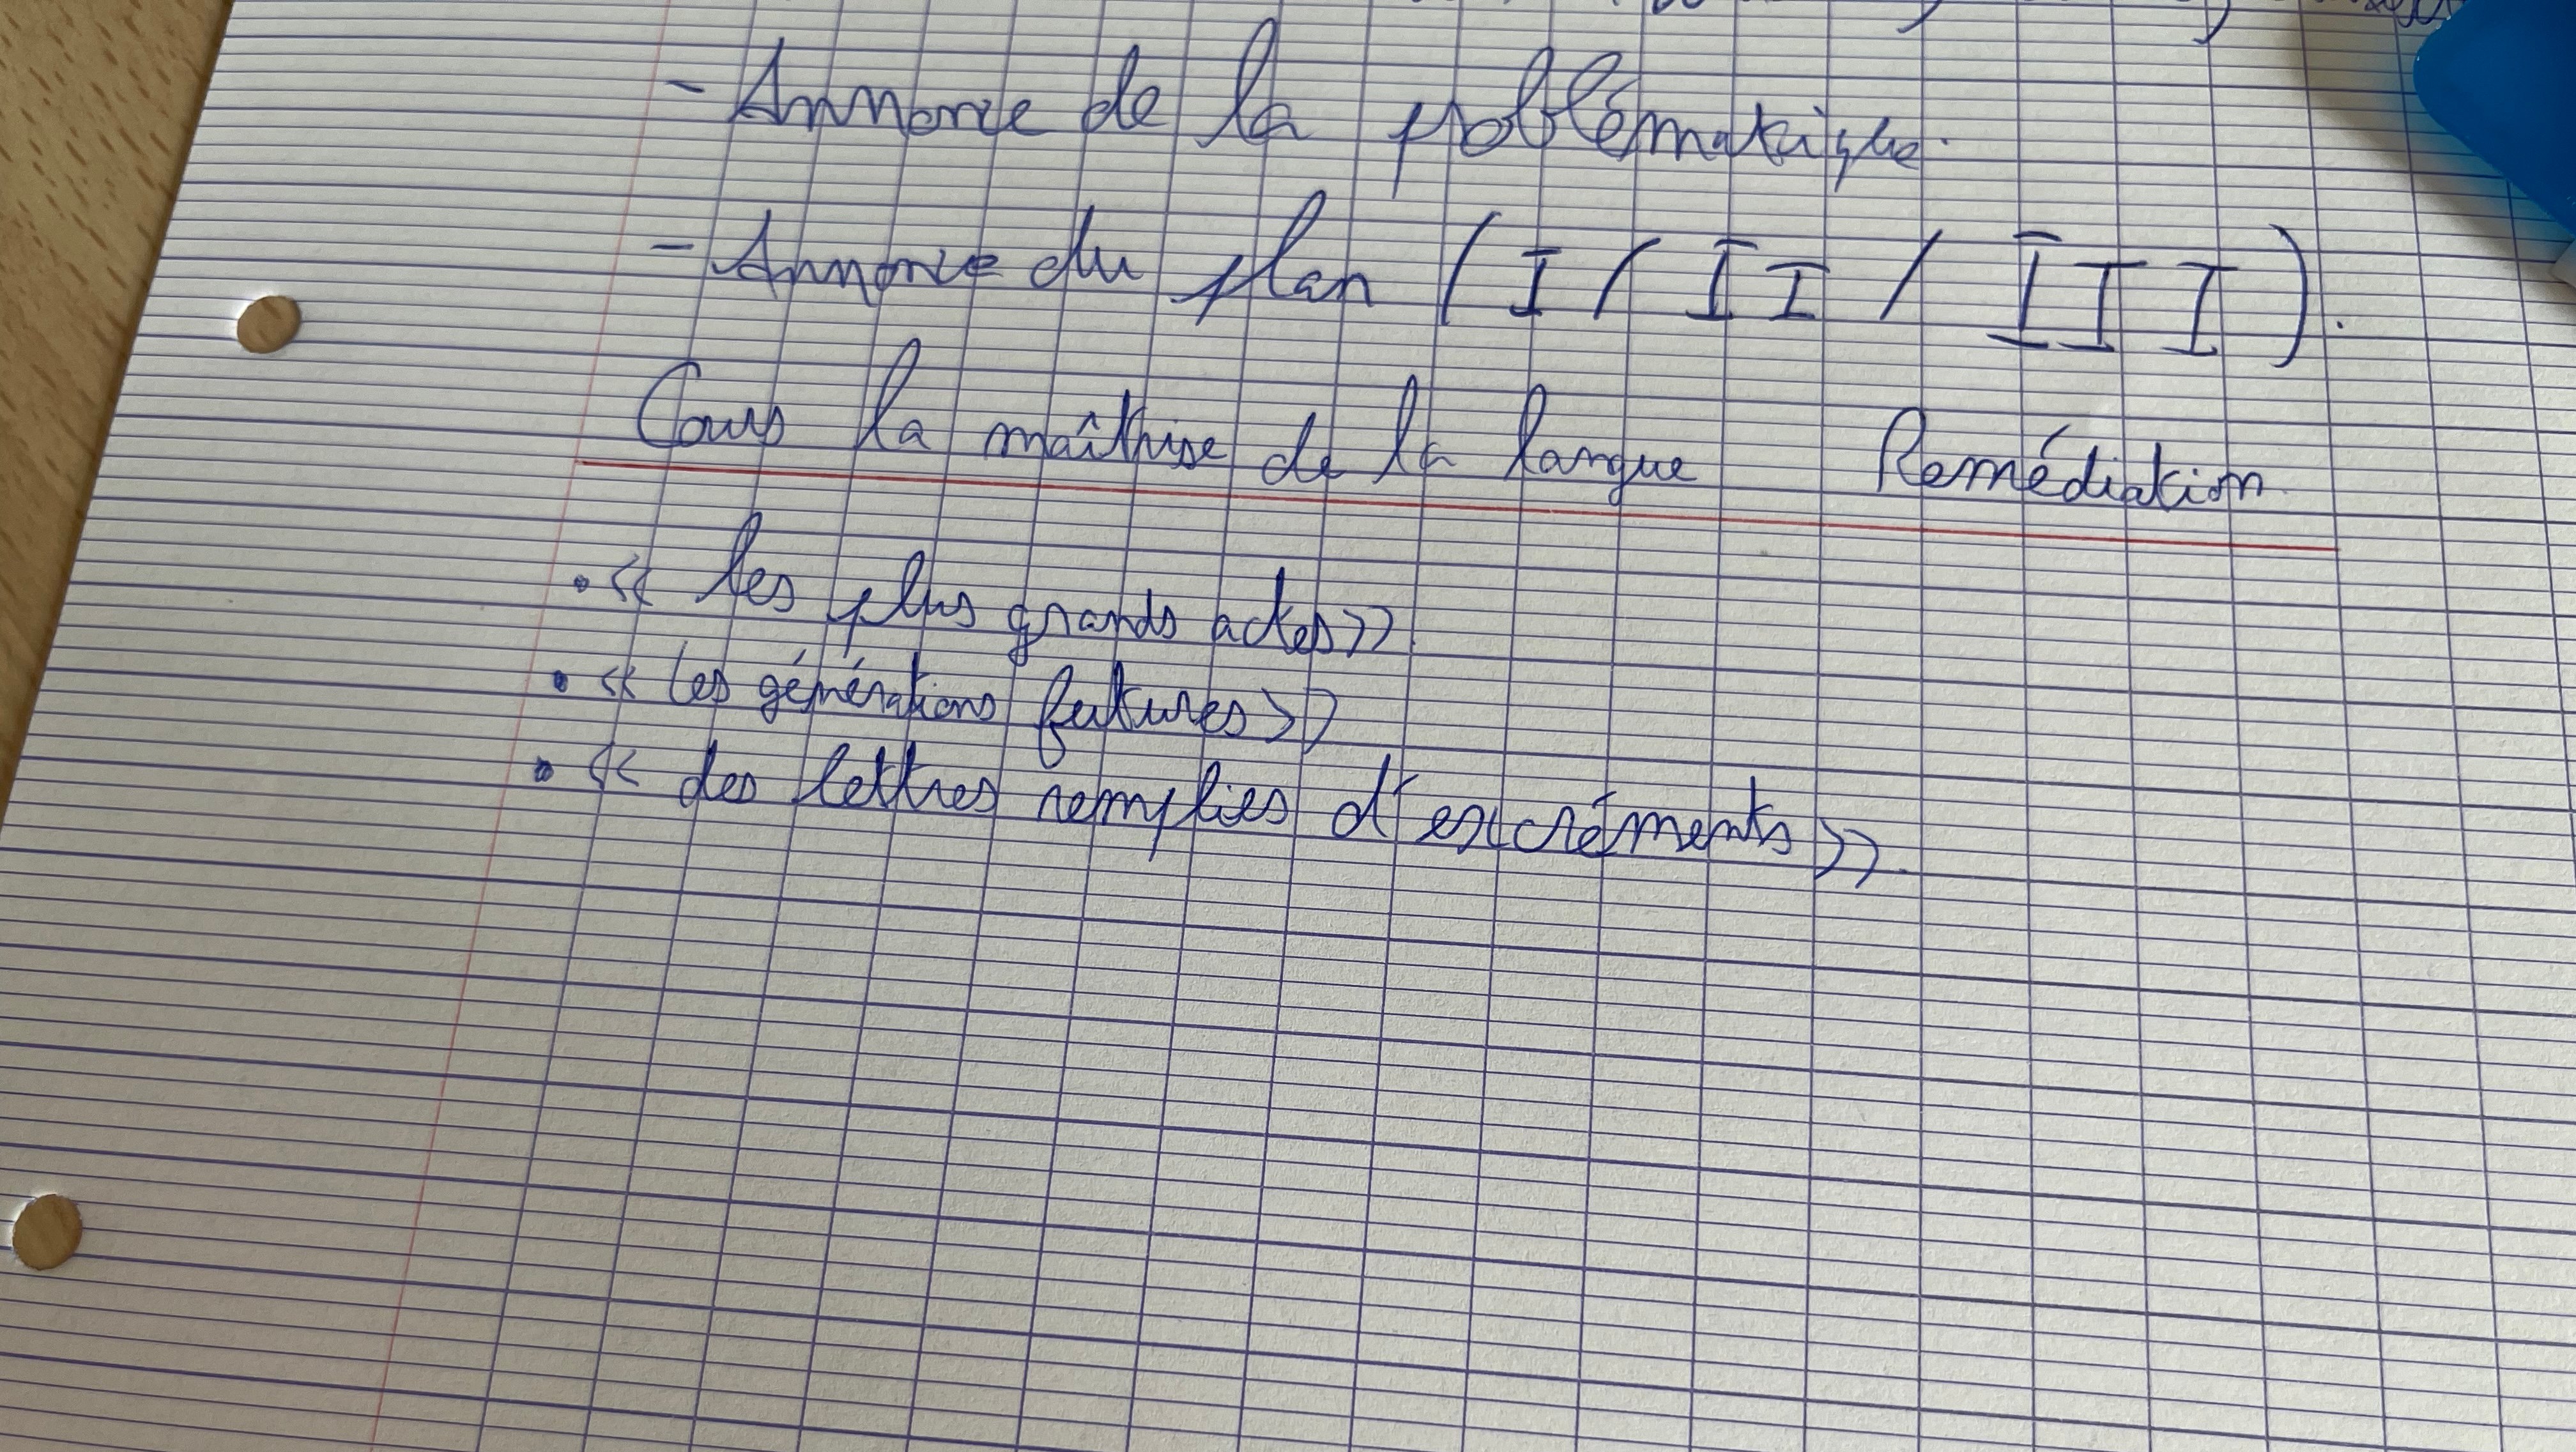 - Annonce de la poblématique.
- Annonce du plan (I / II / III).
Cours la maîtrise de la langue Remédiation
• « les plus grands actes ».
• « les générations futures »
• « des lettres remplies d'excréments ».